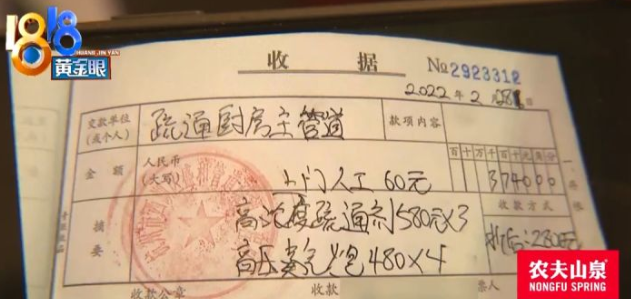 1818
HUANG JIN YAN
黄金眼
收 据
No 2923312
2022年2月28日
交款单位
(或个人)
疏通厨房主管道
款项内容
百十万千百十元角分
金额
人民币
(大写)
上门人工 60元
374000
收款方式
摘要
高浓度疏通剂580元×3
高压氮气炮480×4
折后:2280元
收款公章
收款
票人
农夫山泉
NONGFU SPRING